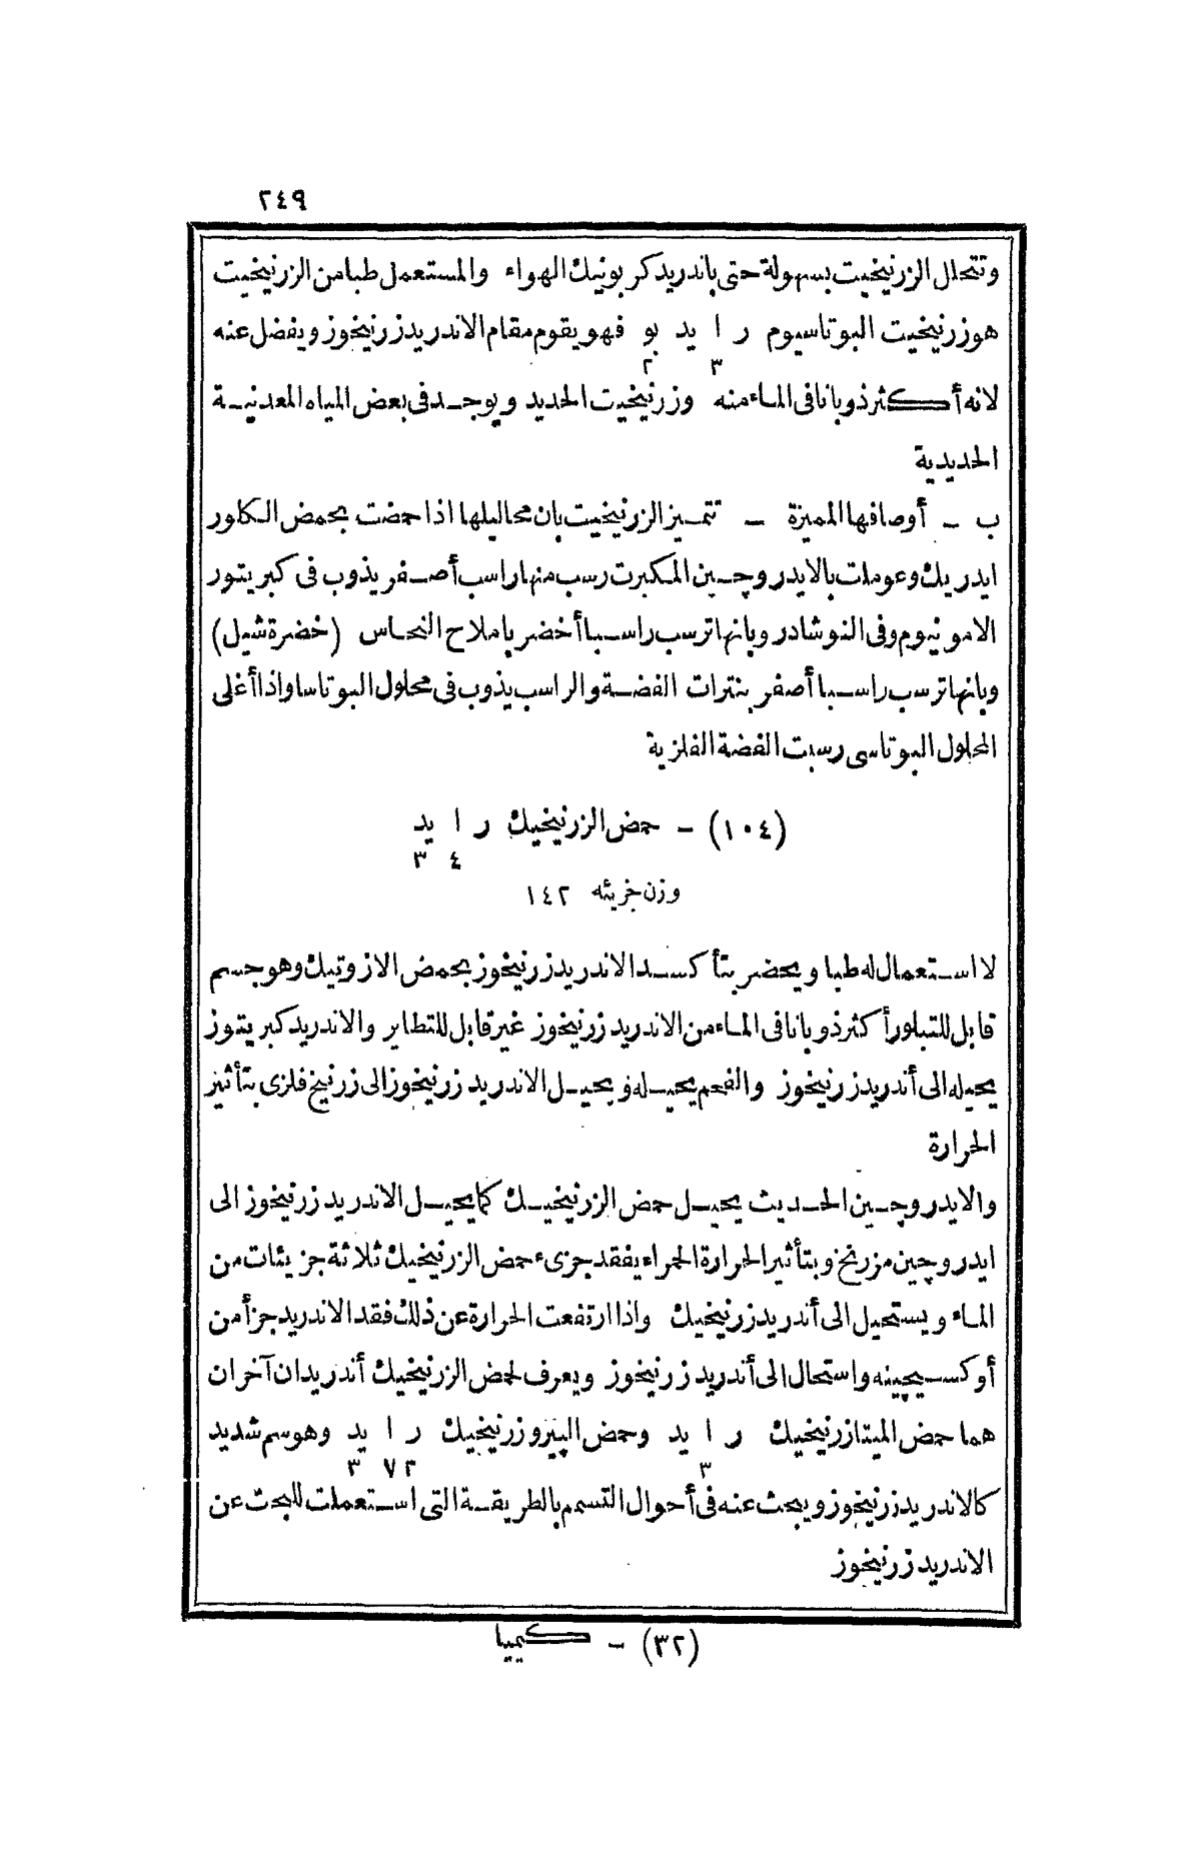 ٢٤٩
وتتحلل الزرنيخيت بسهولة حتى باندريد كربونيك الهواء والمستعمل طبا من الزرنيخيت
هو زرنيخيت البوتاسيوم ر ا يد بو فهو يقوم مقام الاندريد زرنيخوز ويفضل عنه
٣ ٢
لانه أكثر ذوبانا فى الماء منه وزرنيخيت الحديد ويوجد فى بعض المياه المعدنية
الحديدية
ب - أوصافها المميزة - تتميز الزرنيخيت بان محاليلها اذا حمضت بحمض الكلور
ايدريك وعوملت بالايدروچين المكبرت رسب منها راسب أصفر يذوب فى كبريتور
الامونيوم وفى النوشادر وبانها ترسب راسبا أخضر باملاح النحاس (خضرة شيل)
وبانها ترسب راسبا أصفر بنترات الفضة والراسب يذوب فى محلول البوتاسا واذا أغلى
المحلول البوتاسى رسبت الفضة الفلزية
(١٠٤) - حمض الزرنيخيك ر ا يد
٤ ٣
وزن جزيئه ١٤٢
لا استعمال له طبا ويحضر بتأكسد الاندريد زرنيخوز بحمض الازوتيك وهو جسم
قابل للتبلور أكثر ذوبانا فى الماء من الاندريد زرنيخوز غير قابل للتطاير والاندريد كبريتوز
يحيله الى أندريد زرنيخوز والفحم يحيله ويحيل الاندريد زرنيخوز الى زرنيخ فلزى بتأثير
الحرارة
والايدروچين الحديث يحيل حمض الزرنيخيك كما يحيل الاندريد زرنيخوز الى
ايدروچين مزرنخ وبتأثير الحرارة الحمراء يفقد جزىء حمض الزرنيخيك ثلاثة جزيئات من
الماء ويستحيل الى أندريد زرنيخيك واذا ارتفعت الحرارة عن ذلك فقد الاندريد جزأ من
أوكسيچينه واستحال الى أندريد زرنيخوز ويعرف لحمض الزرنيخيك أندريدان آخران
هما حمض الميتازرنيخيك ر ا يد وحمض الپيروزرنيخيك ر ا يد وهو سم شديد
٣ ٢ ٧ ٣
كالاندريد زرنيخوز ويبحث عنه فى أحوال التسمم بالطريقة التى استعملت للبحث عن
الاندريد زرنيخوز
(٣٢) - كيميا